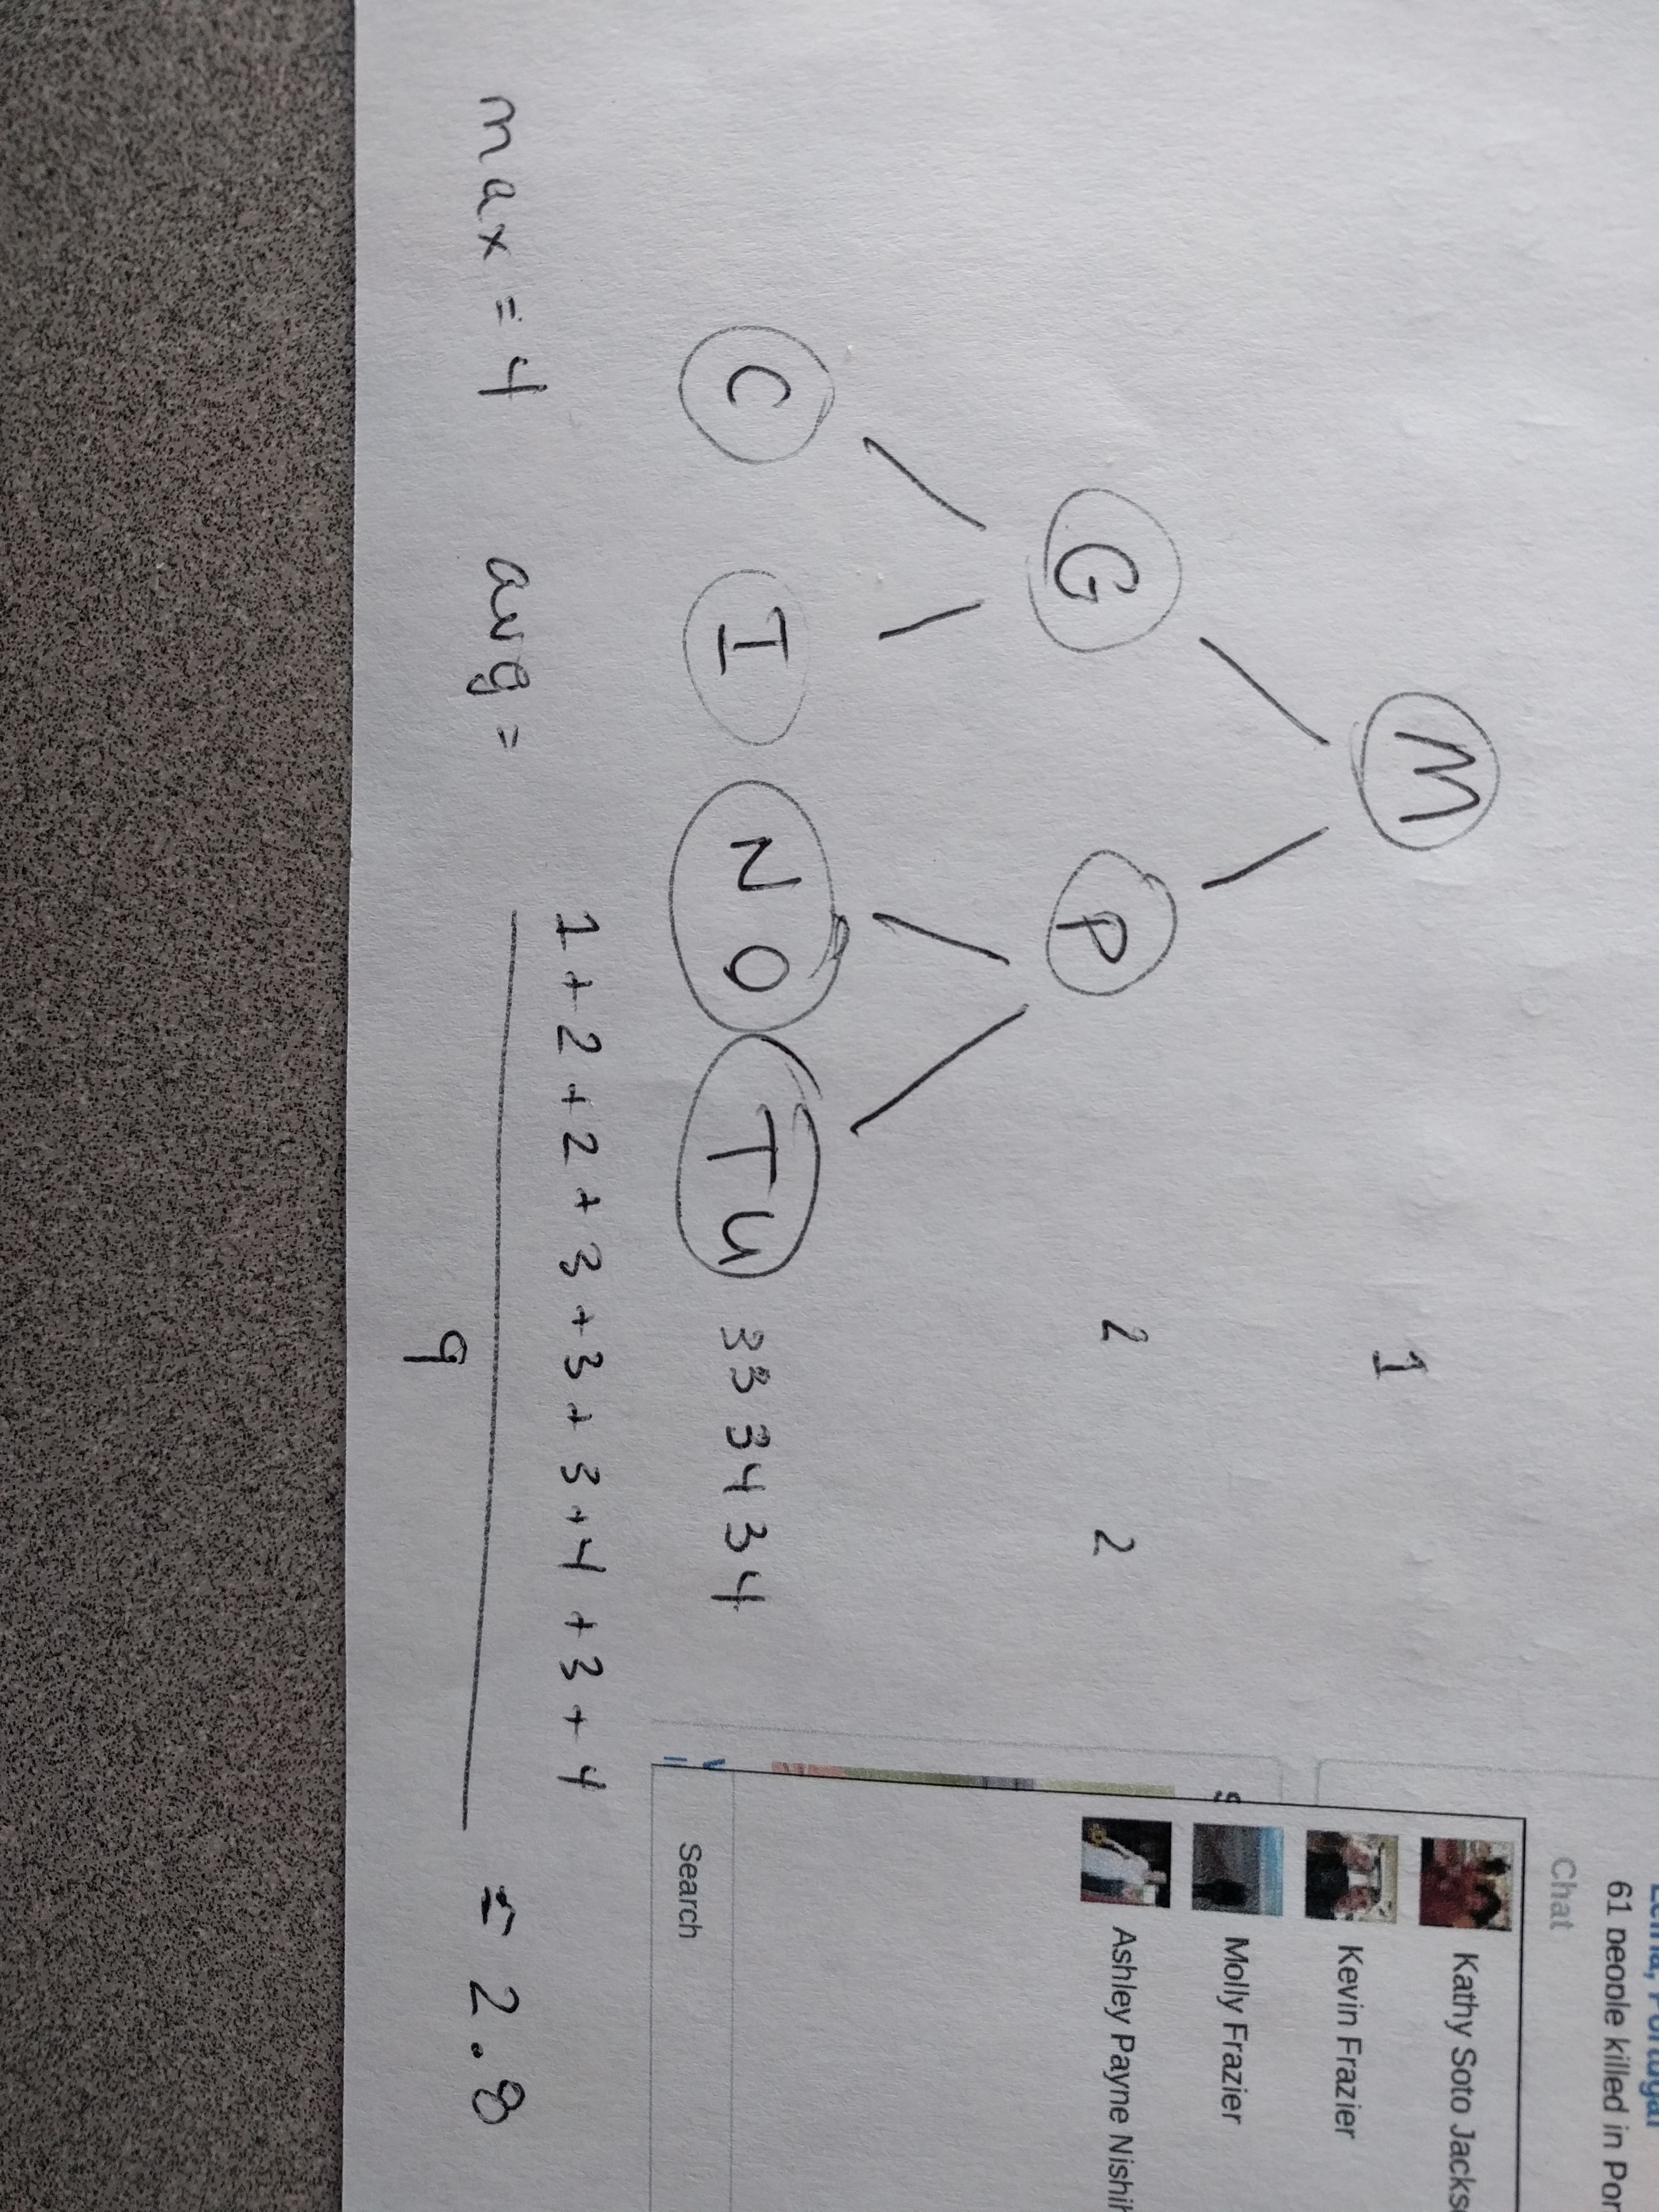 M 1
G P 2 2
C I N O T U 3 3 3 4 3 4
max = 4 avg =
1 + 2 + 2 + 3 + 3 + 3 + 4 + 3 + 4
9
= 2.8
61 people killed in Por
Chat
Kathy Soto Jackso
Kevin Frazier
Molly Frazier
Ashley Payne Nishih
Search